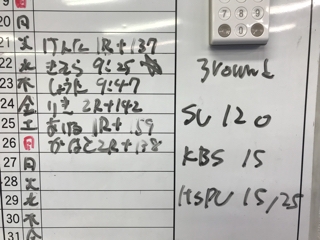 20 月
21 火 けんた 1R+137
22 水 きよら 9:25
23 木 しょうた 9:47
24 金 りき 2R+142
25 土 1R+159
26 日 かなと 2R+138
27 月
28 火
29 水
30 木
31 金
3round
SU 120
KBS 15
HSPU 15/25